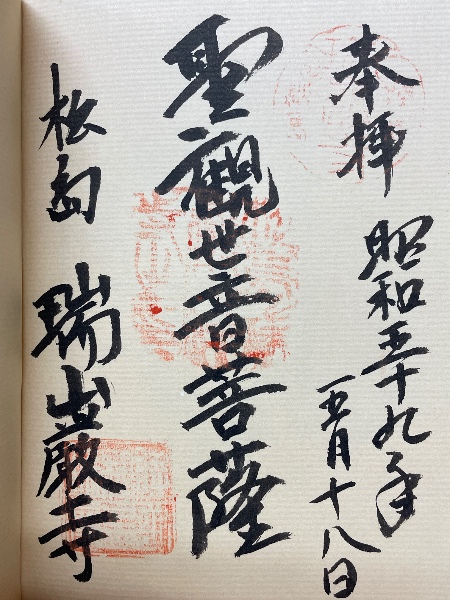 奉拝
昭和五十九年
五月十八日
聖觀世音菩薩
松島 瑞巌寺